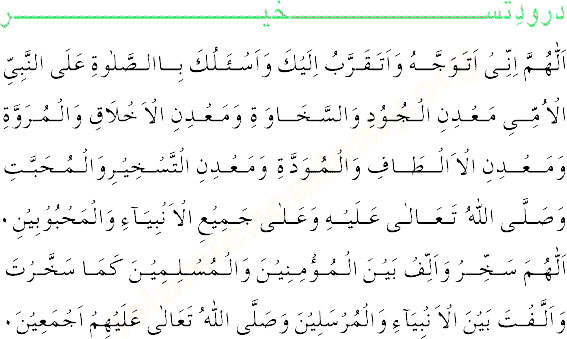 درودِتسخیر
اَللّٰهُمَّ اِنِّیْ اَتَوَجَّهُ وَاَتَقَرَّبُ اِلَیْكَ وَاَسْئَلُكَ بِاالصَّلٰوةِ عَلَی النَّبِیِّ
الْاُمِّیِ مَعْدِنِ الْجُوْدِ وَالسَّخَاوَةِ وَمَعْدِنِ الْاَخْلَاقِ وَالْمُرَوَّةِ
وَمَعْدِنِ الْاَلْطَافِ وَالْمُوَدَّةِ وَمَعْدِنِ التَّسْخِیْرِوَالْمُحَبَّتِ
وَصَلَّی اللّٰهُ تَعَالٰی عَلَیْهِ وَعَلٰی جَمِیْعِ الْاَنْبِیَآءِ وَالْمَحْبُوْبِیْنِ۰
اَللّٰهُمَ سَخِّرْ وَاَلِّفْ بَیْنَ الْمُؤْمِنِیْنَ وَالْمُسْلِمِیْنَ كَمَا سَخَّرْتَ
وَاَلَّفْتَ بَیْنَ الْاَنْبِیَآءِ وَالْمُرْسَلِیْنَ وَصَلَّی اللّٰهُ تَعَالٰی عَلَیْهِمْ اَجْمَعِیْنَ۰